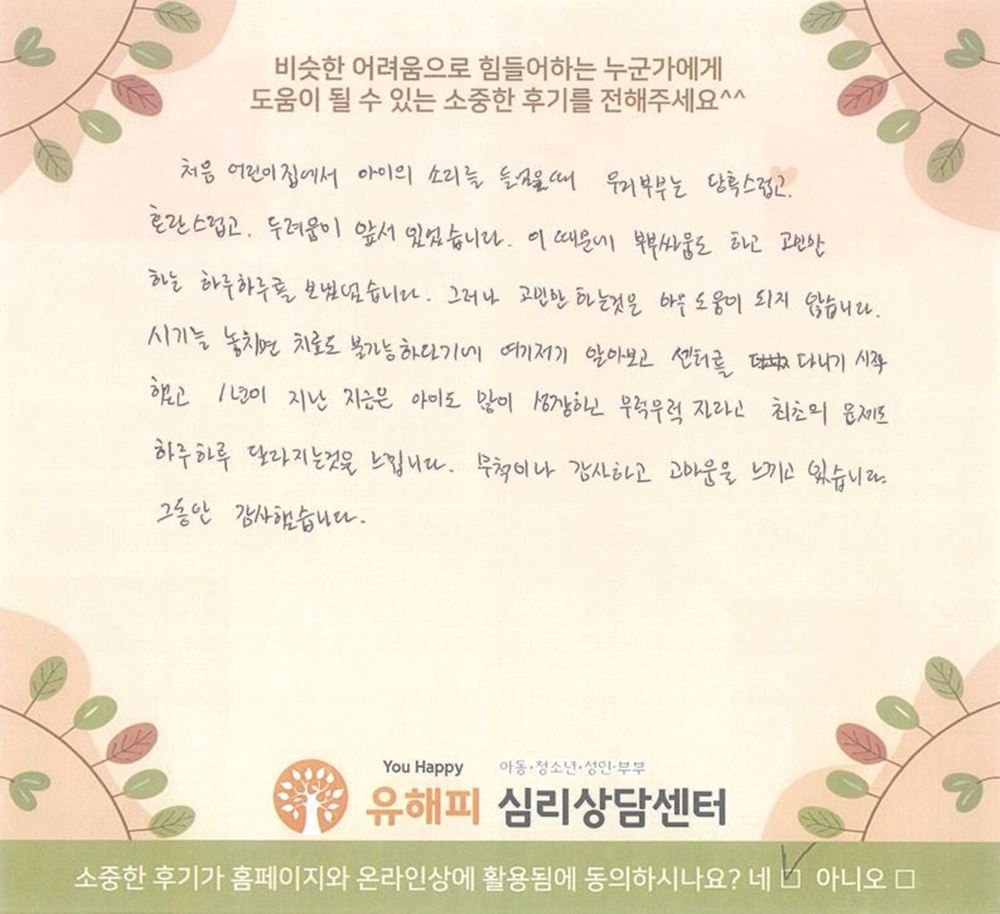 비슷한 어려움으로 힘들어하는 누군가에게
도움이 될 수 있는 소중한 후기를 전해주세요^^
처음 어린이집에서 아이의 소리를 들었을때 우리부부는 당혹스럽고,
혼란스럽고, 두려움이 앞서 있었습니다. 이 때문에 부부싸움도 하고 고민만
하는 하루하루를 보냈었습니다. 그러나 고민만 하는것은 아무 도움이 되지 않습니다.
시기를 놓치면 치료도 불가능하다기에 여기저기 알아보고 센터를 다니기 시작
했고 1년이 지난 지금은 아이도 많이 성장하고 무럭무럭 자라고 최초의 문제도
하루하루 달라지는것을 느낍니다. 무척이나 감사하고 고마움을 느끼고 있습니다.
그동안 감사했습니다.
You Happy 아동·청소년·성인·부부
유해피 심리상담센터
소중한 후기가 홈페이지와 온라인상에 활용됨에 동의하시나요? 네 아니오